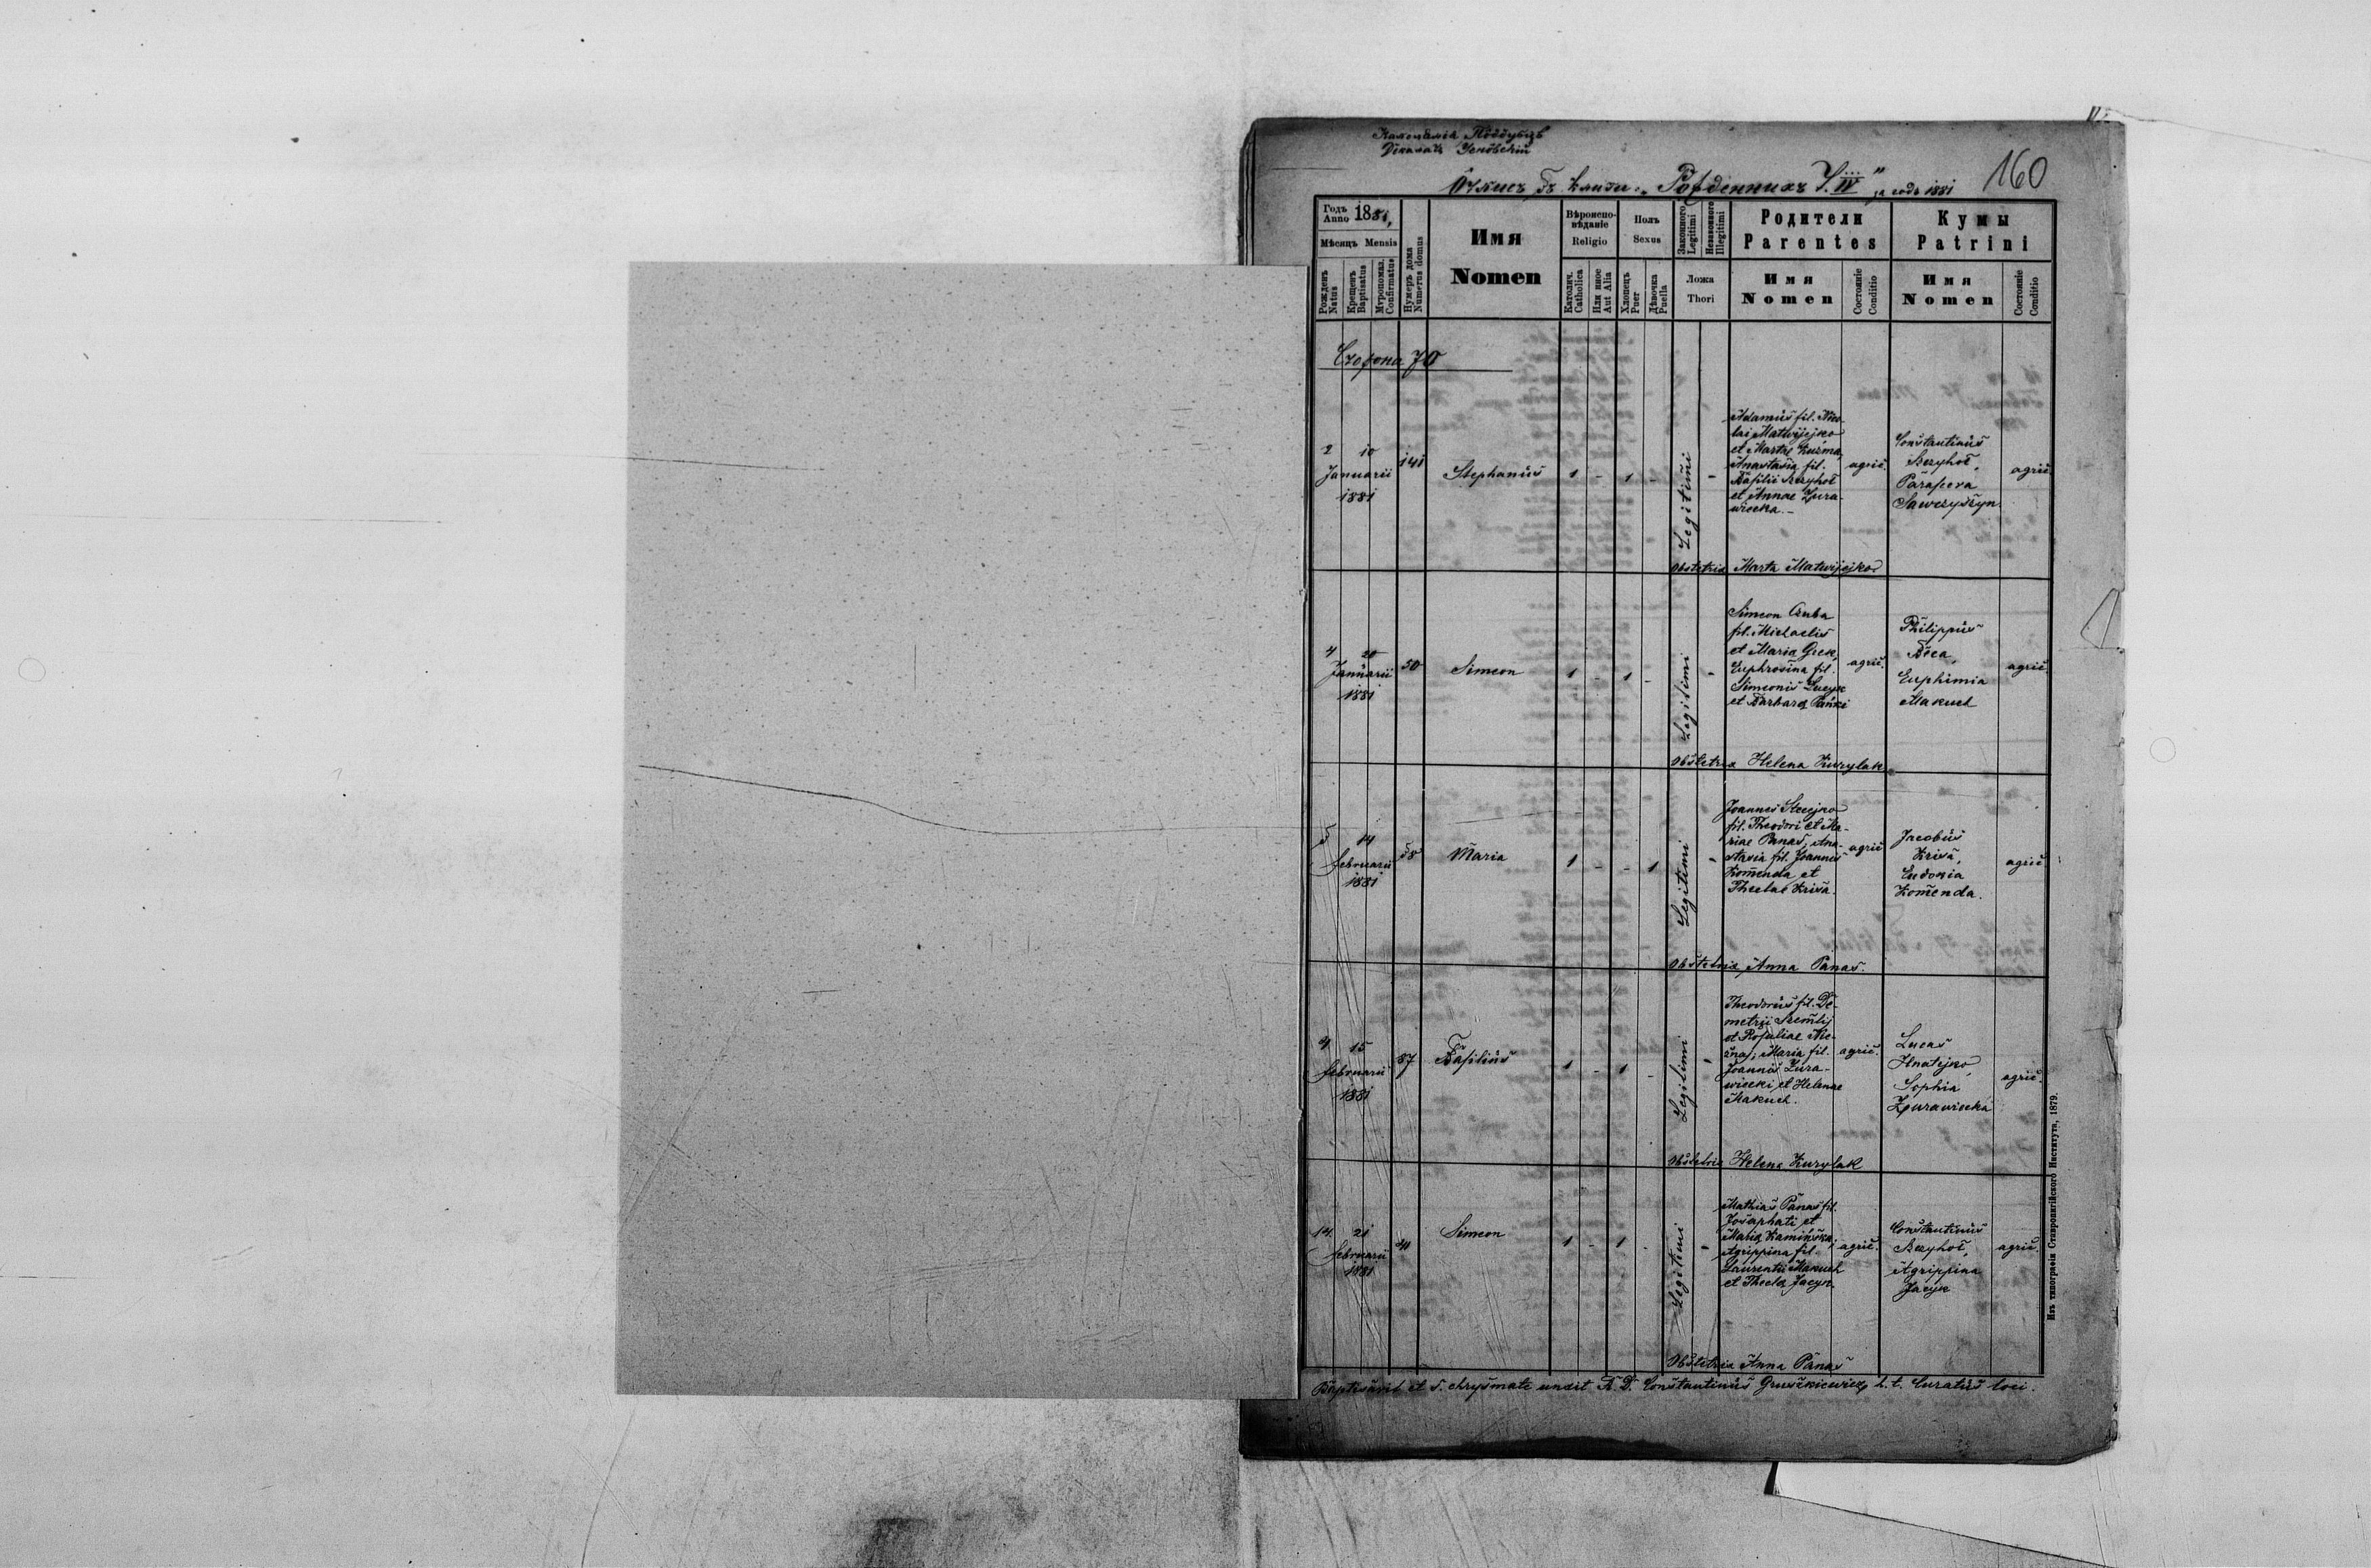 Капеланія Поддубцѣ
Деканатъ Угновскій
160
за годъ 1881
Годъ Anno 1881,
Мѣсяцъ Mensis
Рожденъ Natus
Крещенъ Baptisatus
Мѵропомаз. Confirmatus
Нумеръ дома Numerus domus
Имя
Nomen
Вѣроиспо-
вѣданіе
Religio
Католич. Catholica
Или иное Aut Alia
Полъ
Sexus
Хлопецъ Puer
Дѣвочка Puella
Законного Legitimi
Незаконного Illegitimi
Ложа
Thori
Родители
Parentes
Имя
Nomen
Состояніе Conditio
Кумы
Patrini
Имя
Nomen
Состояніе Conditio
70
2 10
Januarii
1881
141
Stephanus
1 - 1 -
Legitimi
-
Adamus fil. Nico-
lai Matwijejko
et Martha Kuzma,
Anastasia fil.
Basilii Bezyhoł
et Annae Żura-
wiecka. -
agric.
Constantinus
Bezyhoł,
Parasceva
agric.
Obstetrix Marta Matwijejko
4 20
Januarii
1881
50
Simeon
1 - 1 -
Legitimi
-
Simeon
fil. Michaelis
et Maria
Euphrosina fil.
Simeonis
et Barbara
agric.
Philippus
Euphimia
Makuch
agric.
Obstetrix Helena Kurylak
5 14
februarii
1881
58
Maria
1 - - 1
Legitimi
-
Joannes Stecejko
fil. Theodori et Ma-
riae Panas, Ana-
stasia fil. Joannis
Komenda et
Theclae Krisa.
agric
Jacobus
Krisa,
Eudokia
Komenda.
agric.
Obstetrix Anna Panas.
4 15
februarii
1881
87
Basilius
1 - 1 -
Legitimi
-
Theodorus fil. De-
metrii
et Rosaliae
Maria fil.
Joannis Żura-
wiecki et Helenae
Makuch.
agric.
Lucas
Hnatejko
Sophia
Żurawiecka
agric.
Obstetrix Helena Kurylak
14 21
februarii
1881
41
Simeon
1 - 1 -
Legitimi
-
Mathias Panas fil.
Josaphati et
Maria Kamińska;
Agrippina fil.
Laurentii Makuch
et Thecla Jacyk.
agric.
Constantinus
Bezyhoł,
Agrippina
Jacyk
agric.
Obstetrix Anna Panas
Baptisavit et S. chrysmate unxit R. D. Constantinus Gruszkiewicz, h. t. Curatus loci.
Изъ типографіи Ставропигійского Института, 1879.